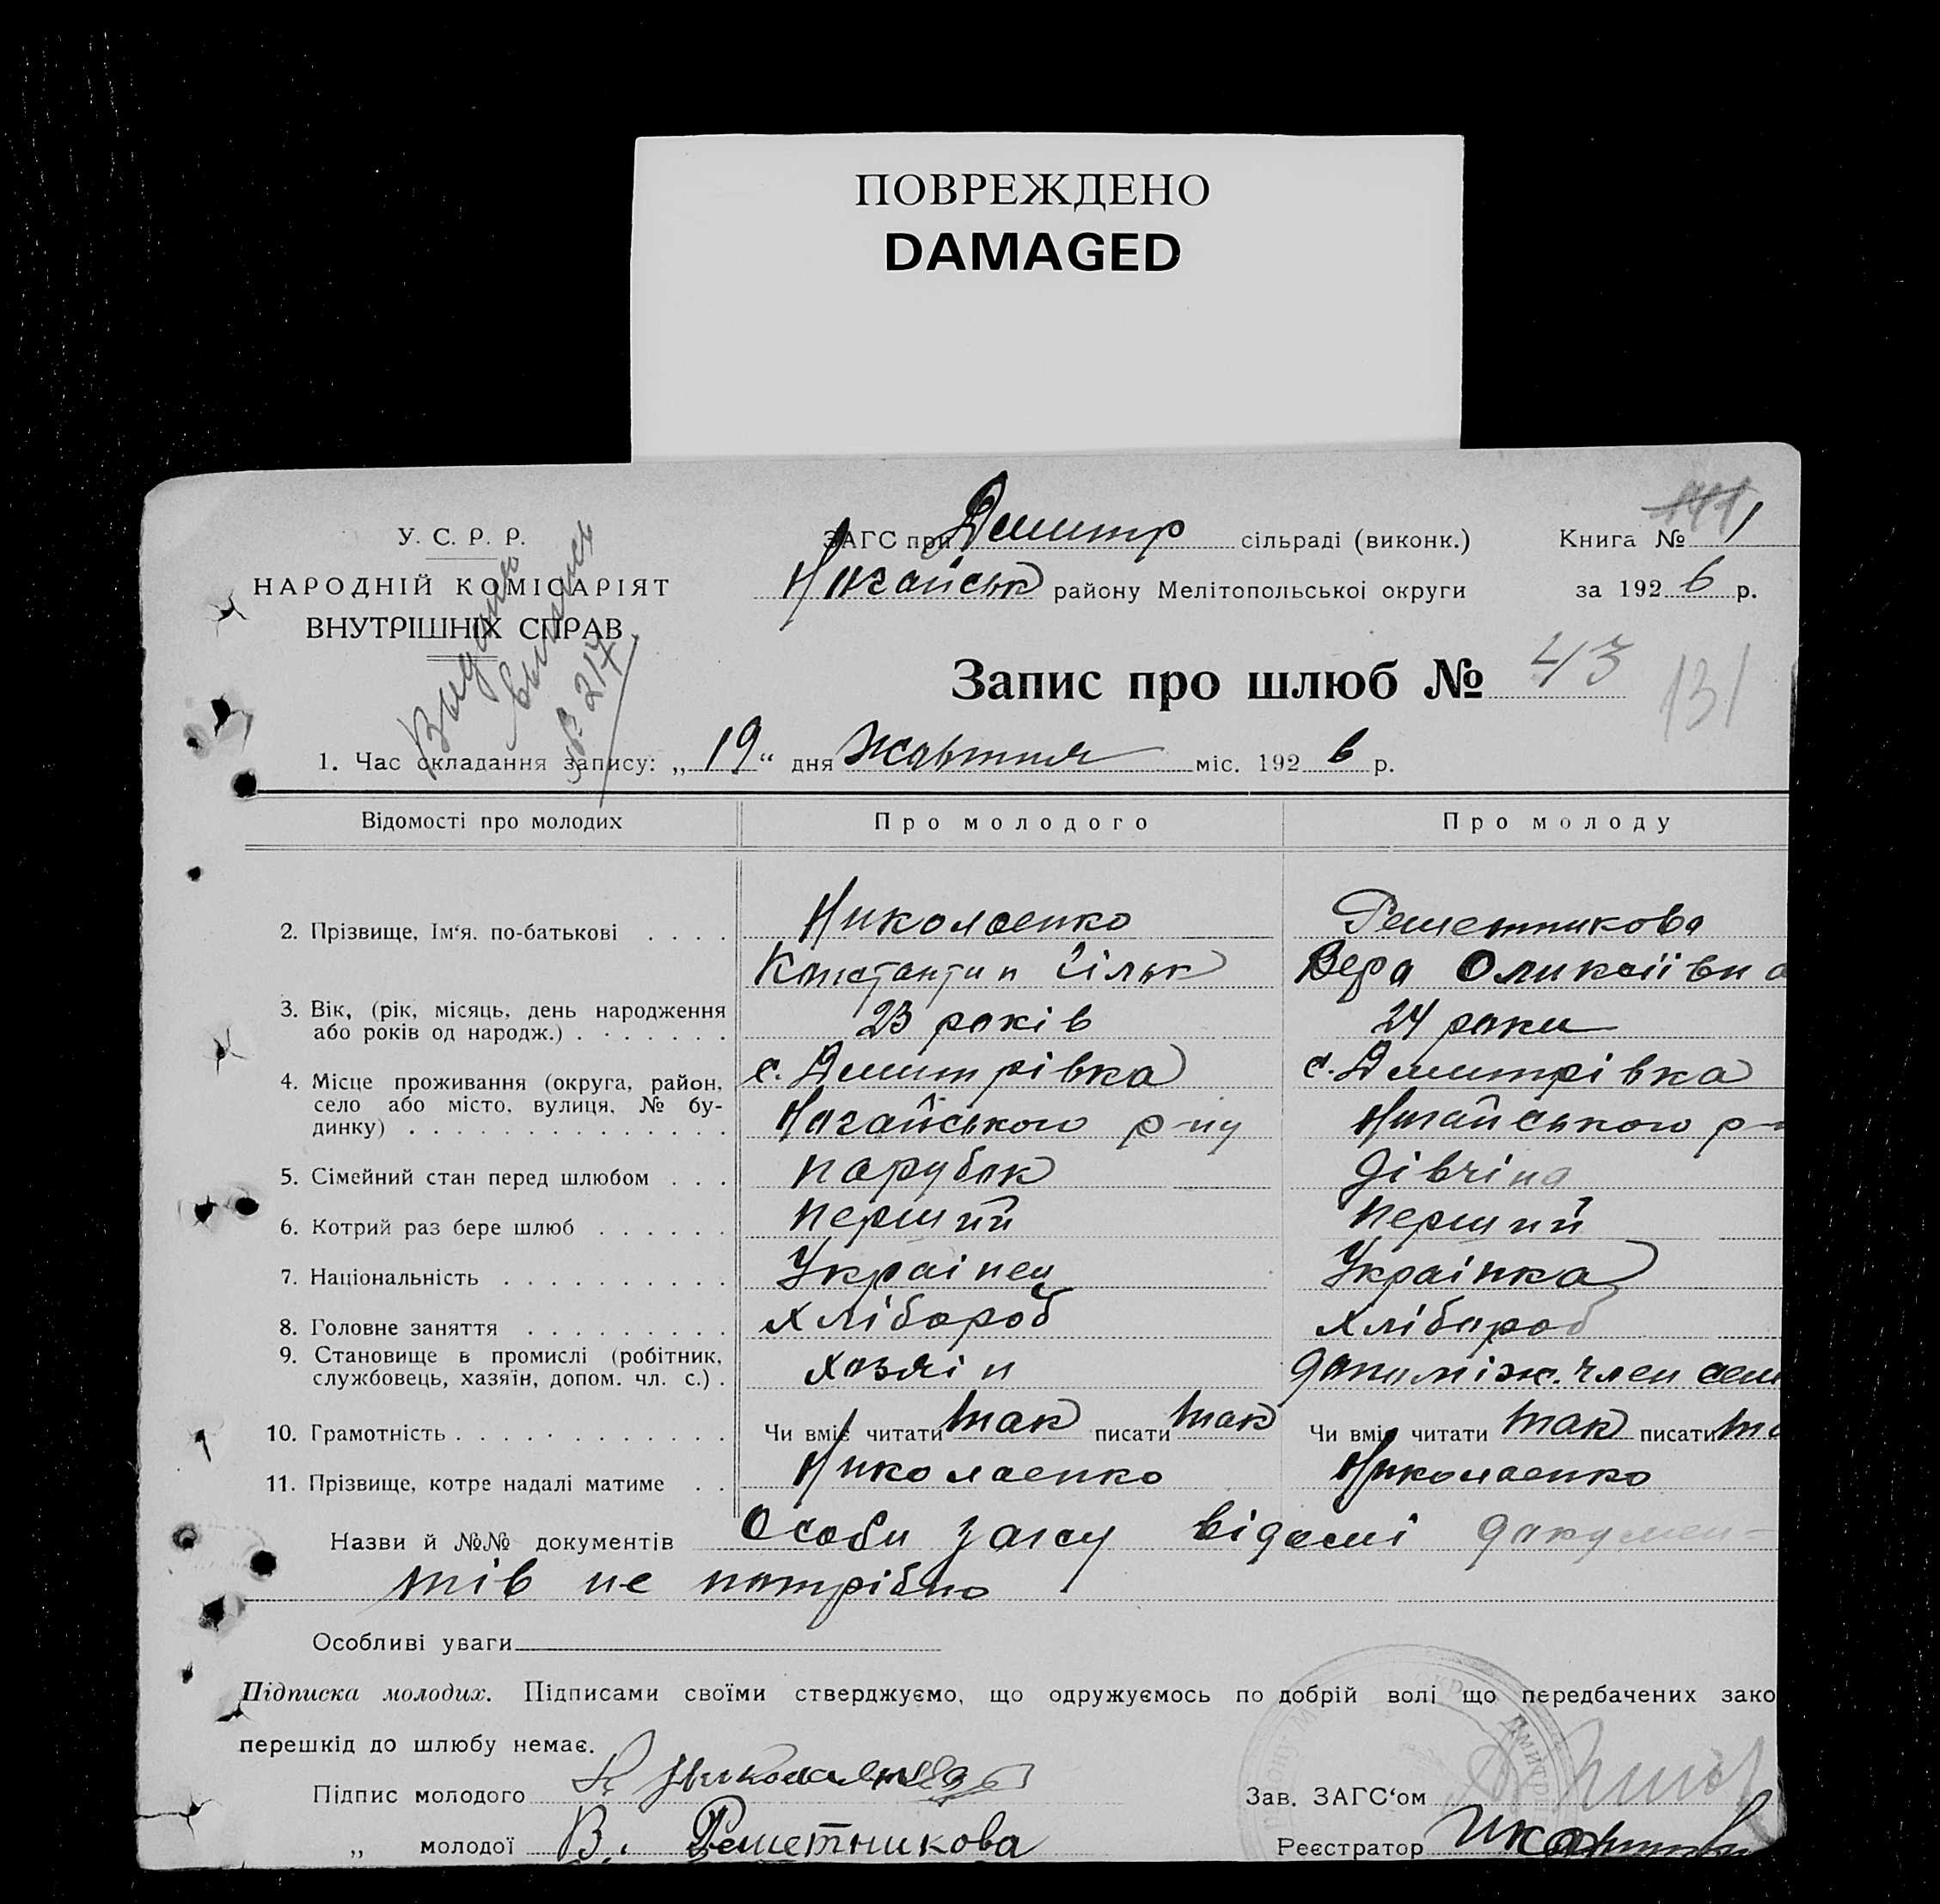 ПОВРЕЖДЕНО
DAMAGED
У. С. Р. Р.
НАРОДНІЙ КОМІСАРІЯТ
ВНУТРІШНІХ СПРАВ
Выдано
выпись
№ 217
ЗАГС при Демитр сільраді (виконк.)
Ногайськ району Мелітопольської округи
Книга № 1
за 1926 р.
Запис про шлюб № 43
131
1. Час складання запису: „19“ дня жовтня міс. 1926 р.
Відомості про молодих Про молодого Про молоду
2. Прізвище, Ім‘я. по-батькові . . . . Николаенко Решетникова
Константин Ільк Вера Оликсіівна
3. Вік, (рік, місяць, день народження
або років од народж.) . . . . . . . 23 років 24 роки
4. Місце проживання (округа, район,
село або місто, вулиця, № бу-
динку) . . . . . . . . . . . . . .
с. Демитрівка
Ногайського р-ну
с. Демитрівка
Ногайського р-
5. Сімейний стан перед шлюбом . . . парубок дівчіна
6. Котрий раз бере шлюб . . . . . . перший перший
7. Національність . . . . . . . . . . Українец Українка
8. Головне заняття . . . . . . . . . хлібороб хлібороб
9. Становище в промислі (робітник,
службовець, хазяїн, допом. чл. с.) . хозяін допоміж. член сем
10. Грамотність . . . . . . . . . . . . Чи вміє читати так писати так Чи вміє читати так писати та
11. Прізвище, котре надалі матиме . . Николаенко Николаенко
Назви й №№ документів Особи загсу відомі докумен-
тів не потрібно
Особливі уваги
Підписка молодих. Підписами своїми стверджуємо, що одружуємось по добрій волі що передбачених зако
перешкід до шлюбу немає.
Підпис молодого
Зав. ЗАГС‘ом
„ молодої В. Решетникова
Реєстратор